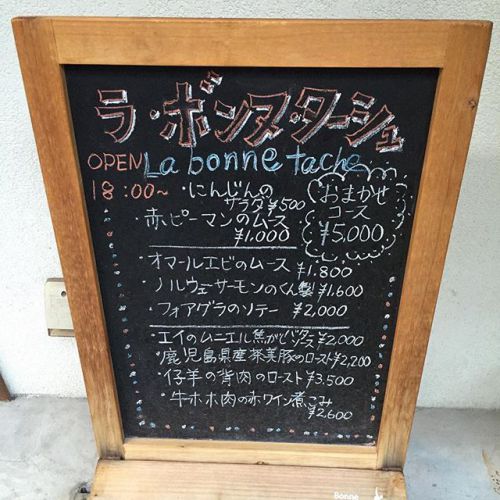 ラ・ボンヌ・ターシュ
La bonne tache
OPEN
18:00~
・にんじんの
サラダ ¥500
・赤ピーマンのムース
¥1,000
おまかせ
コース
¥5,000
・オマールエビのムース ¥1,800
・ノルウェーサーモンのくん製 ¥1,600
・フォアグラのソテー ¥2,000
・エイのムニエル焦がしバターソース ¥2,000
・鹿児島県産茶美豚のロースト ¥2,200
・仔羊の背肉のロースト ¥3,500
・牛ホホ肉の赤ワイン煮こみ
¥2,600
Bonne